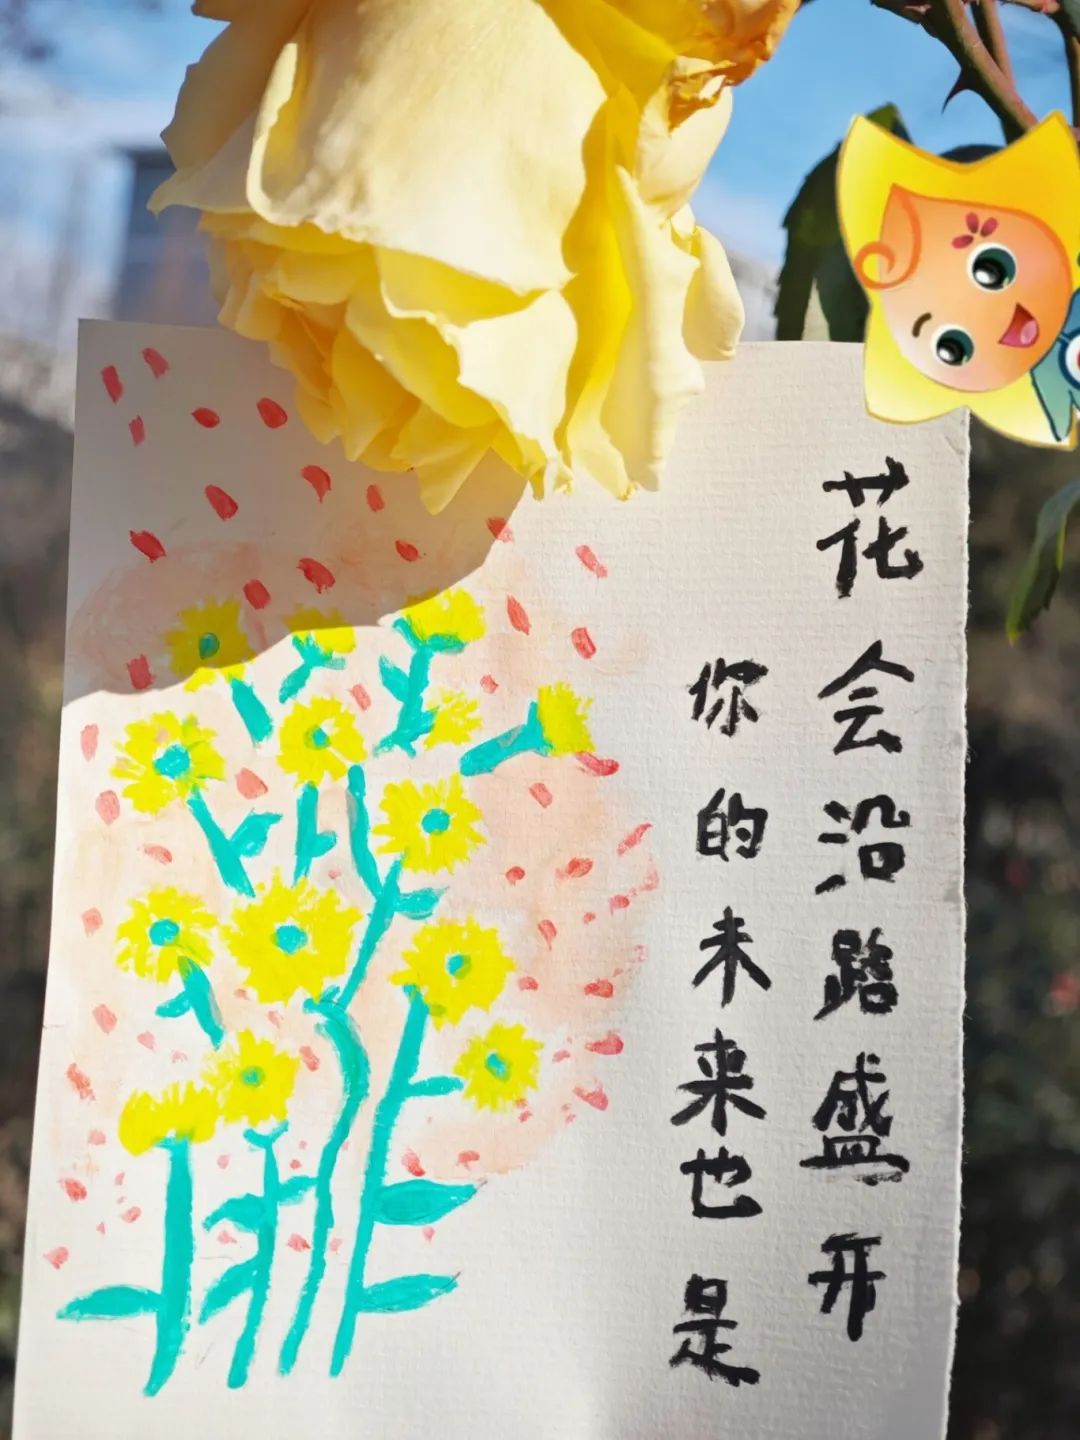 花会沿路盛开
你的未来也是